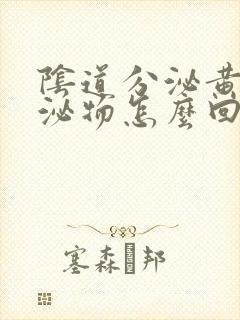 陰道分泌黃
泌物怎麼回
塞森 邦